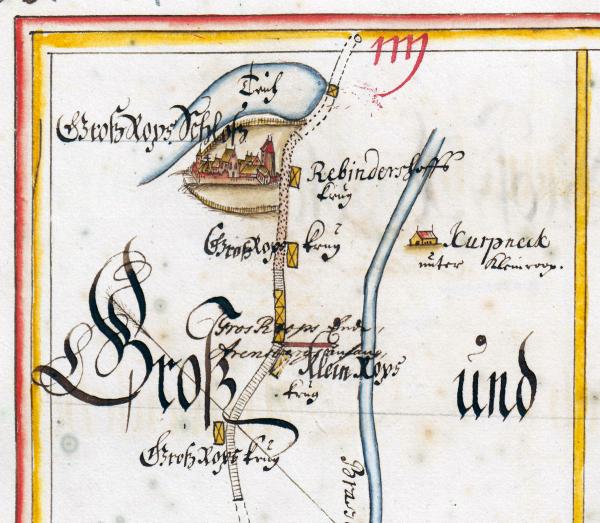 Teich
Groß Rops Schloß
Rebindershoffs
krug
Groß Rops krug
Kurpneck
unter Kleinroop.
Gros Roops Ende,
anfang
Klein Rops
krug
Groß
und
Groß Rops krug